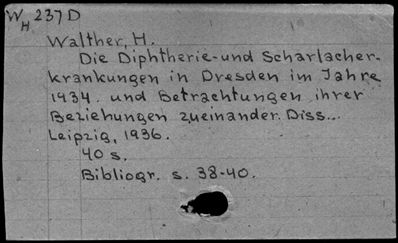 WH 237 D
Walther, H.
Die Diphtherie- und Scharlacher-
krankungen in Dresden im Jahre
1934. und Betrachtungen ihrer
Beziehungen zueinander. Diss...
Leipzig, 1936.
40 s.
Bibliogr. s. 38-40.